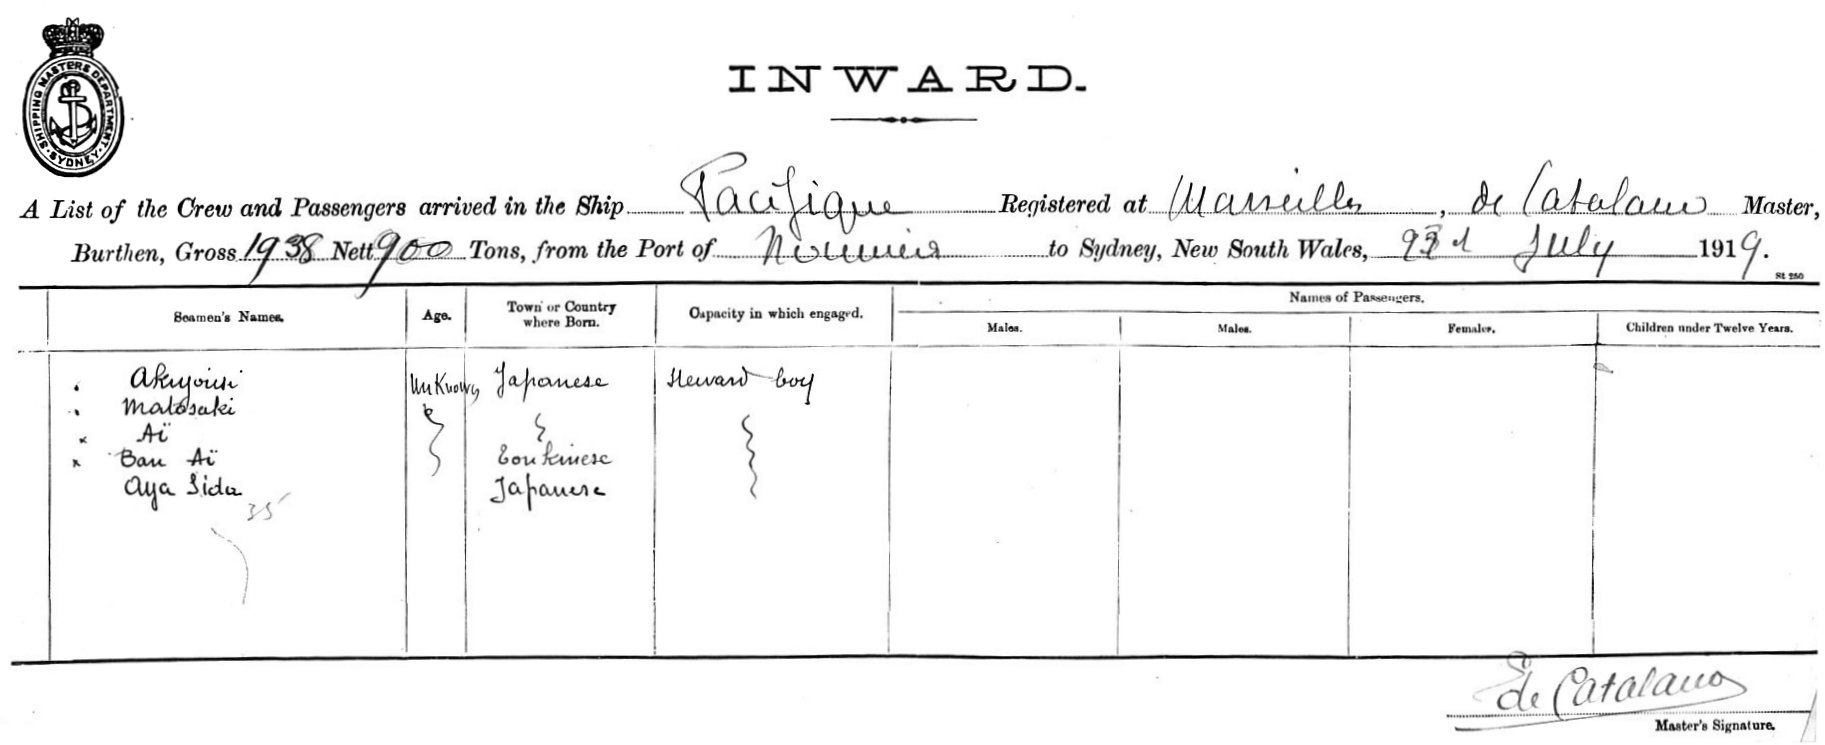 SHIPPING MASTERS DEPARTMENT. SYDNEY.
INWARD.
A List of the Crew and Passengers arrived in the Ship Pacifique Registered at Marseilles, de Catalano Master,
Burthen, Gross 1938 Nett 900 Tons, from the Port of Noumea to Sydney, New South Wales, 23d July 1919.
St 250
Seamen's Names. Age. Town or Country where Born. Capacity in which engaged. Names of Passengers.
Males. Males. Females. Children under Twelve Years.
Unknown Japanese Steward boy
Matosaki
x Aï
x Ban Aï Tonkinese
Aya Sida Japanese
35
de Catalano
Master's Signature.